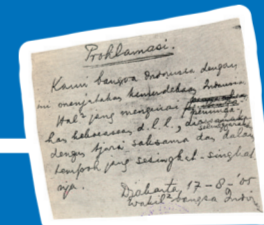 Proklamasi.
Kami bangsa Indonesia dengan
ini menjatakan kemerdekaan Indonesia
Hal² jang mengenai
kekoeasaan d.l.l., di
dengan tjara saksama dan dalam
tempoh jang sesingkat-singkat
nja.
Djakarta, 17-8-'05
Wakil² bangsa Indon